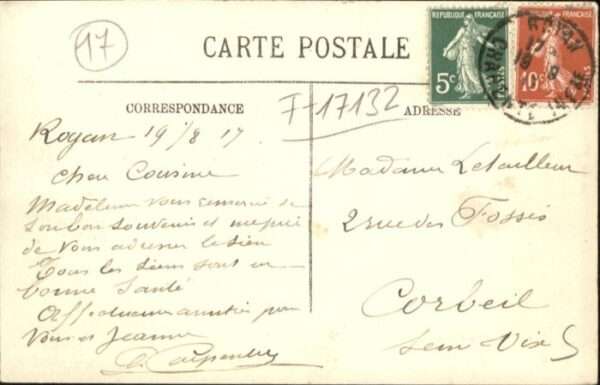 17
CARTE POSTALE
REPUBLIQUE FRANÇAISE
5c
REPUBLIQUE FRANÇAISE
10c
ROYAN
CORRESPONDANCE
F-17132
ADRESSE
Royan 19/8 17
Cher Cousine
Madeleine vous remercie de
son bon souvenir et me prie
de vous adresser le sien
Tous les siens sont en
bonne santé
Affectueuses amitiés pour
vous et Jeanne
Carpentier
Madame Letailleur
2 rue des Fossés
Corbeil
Seine